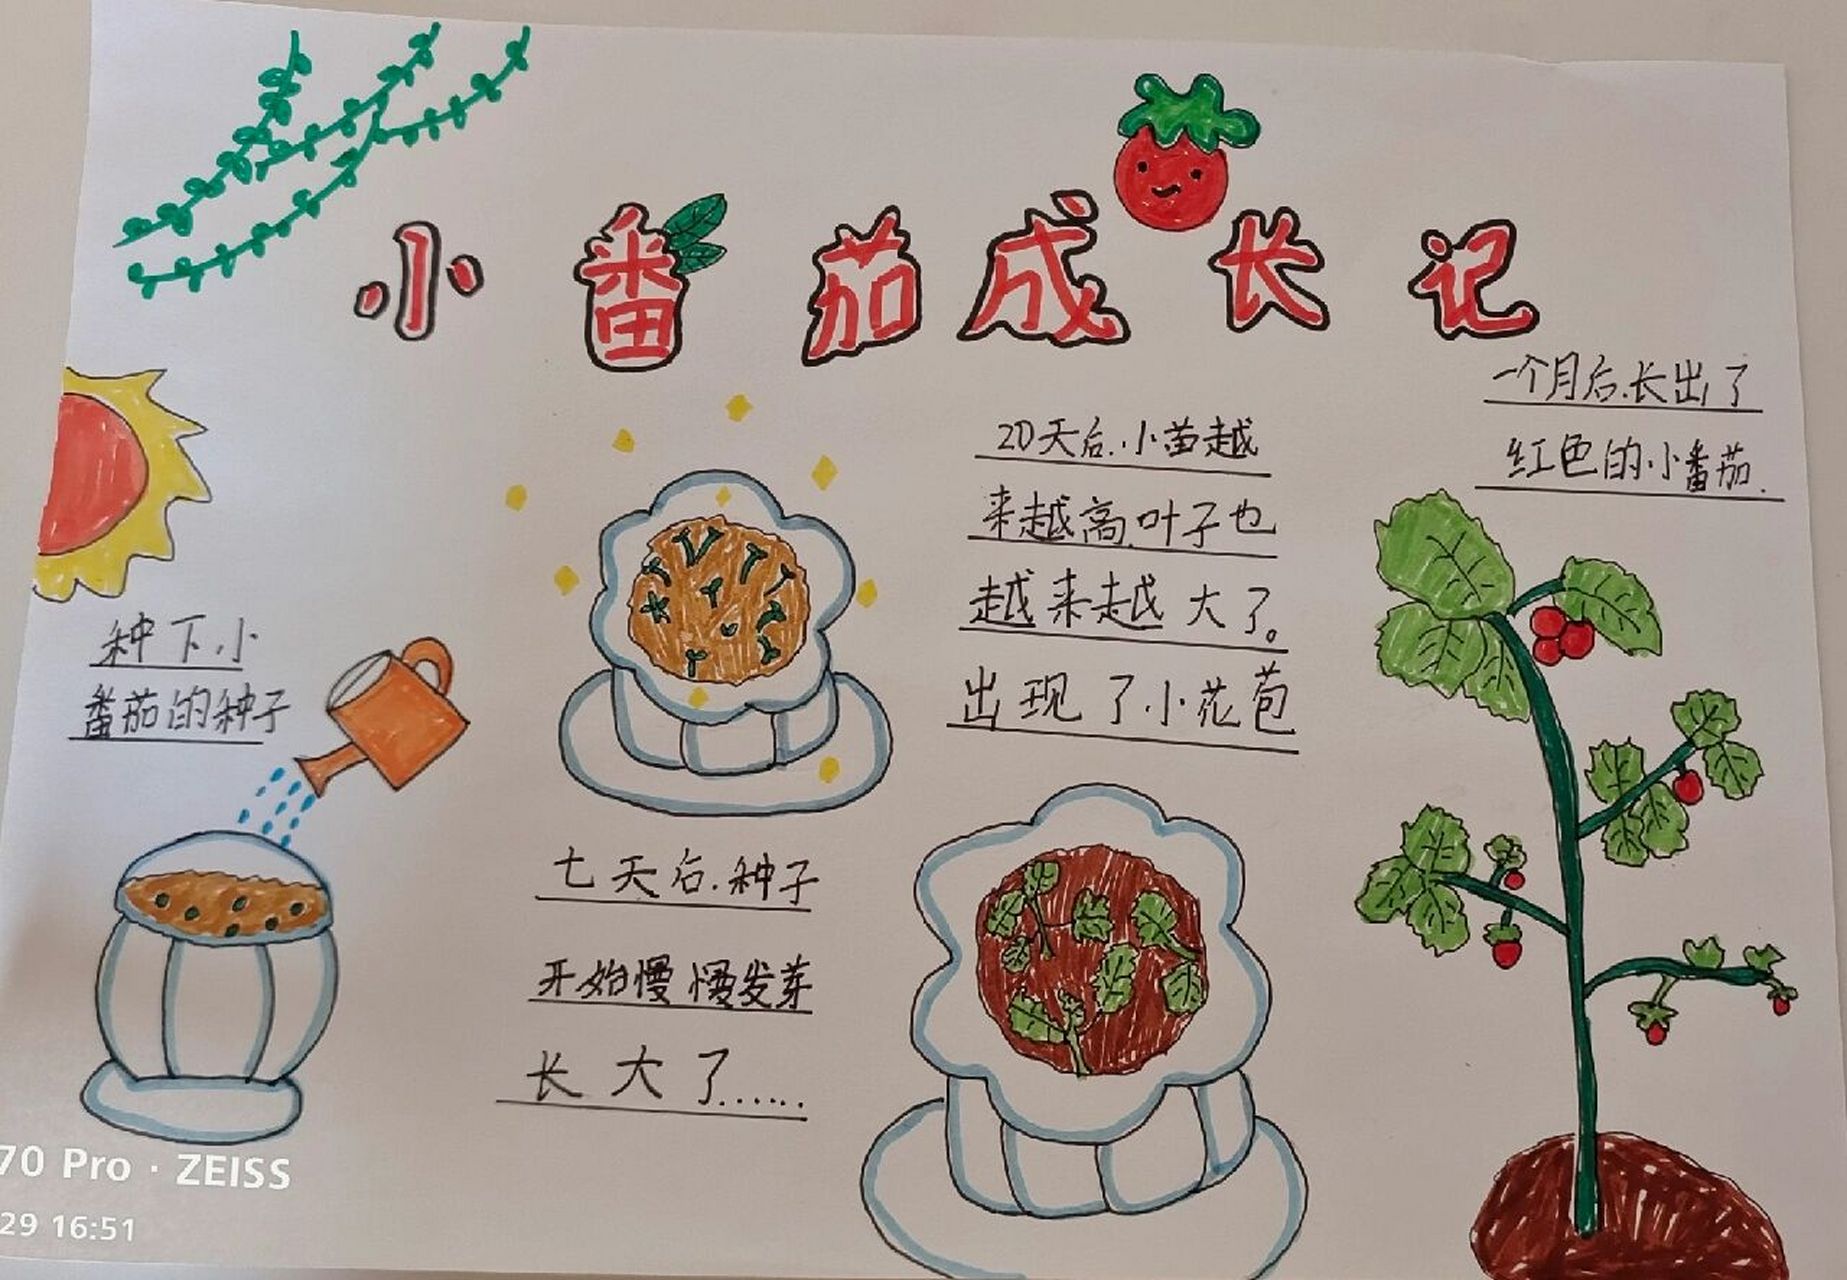 小番茄成长记
种下小
番茄的种子
七天后.种子
开始慢慢发芽
长大了......
20天后.小苗越
来越高.叶子也
越来越大了。
出现了小花苞
一个月后.长出了
红色的小番茄.
70 Pro · ZEISS
29 16:51